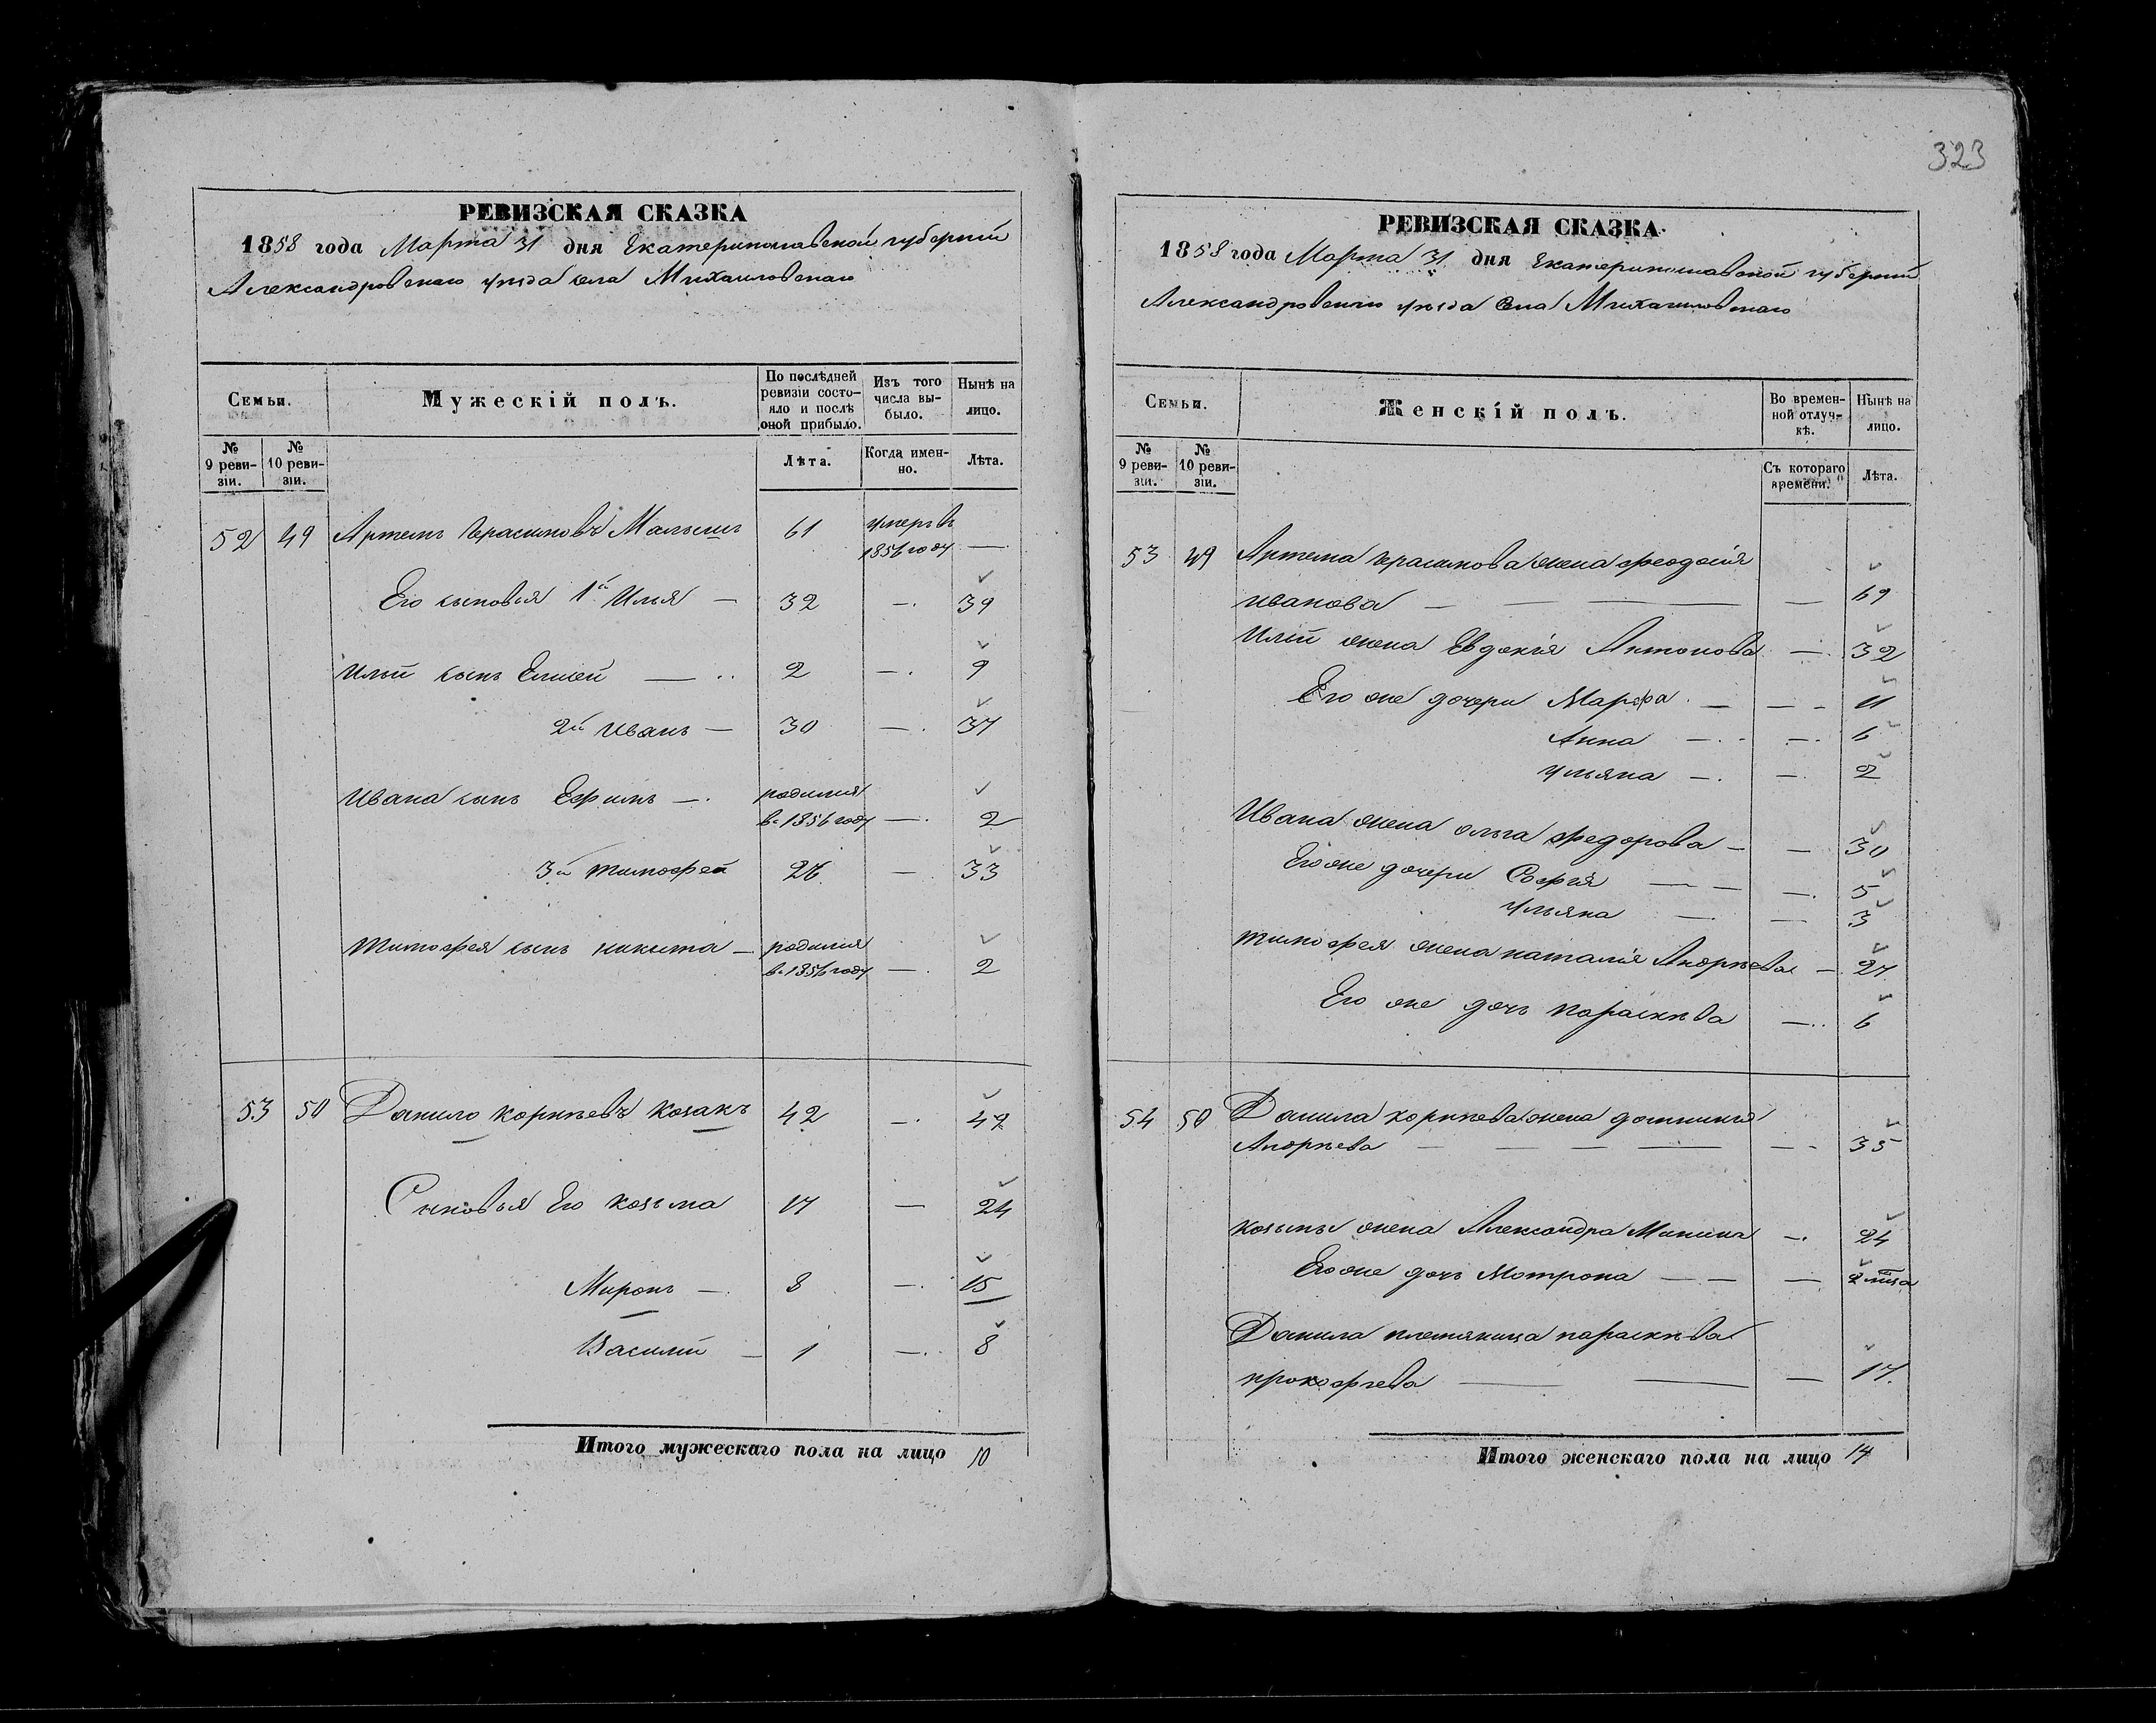 323
РЕВИЗСКАЯ СКАЗКА
1858 года Марта 31 дня Екатеринославской губерніи
Александровскаго уѣзда села Михайловскаго
Семьи. Мужескій полъ. По послѣдней ревизіи состояло и послѣ оной прибыло. Изъ того числа выбыло. Нынѣ на лицо.
№ 9 ревизіи. № 10 ревизіи. Лѣта. Когда именно. Лѣта.
52 49 Артемъ Герасимовъ Малышъ 61 умеръ въ
1856 году —
Его сыновья 1й Илья — 32 — 39
Ильи сынъ Елисей — 2 — 9
2й Иванъ — 30 — 37
Ивана сынъ Ефимъ — родился
въ 1856 году — 2
3й Тимофей 26 — 33
Тимофея сынъ Никита — родился
въ 1856 году — 2
53 50 Данило Корнѣевъ Козакъ 42 — 49
Сыновья Его Козьма 17 — 24
Миронъ — 8 — 15
Василий — 1 — 8
Итого мужескаго пола на лицо 10
РЕВИЗСКАЯ СКАЗКА
1858 года Марта 31 дня Екатеринославской губерніи
Александровскаго уѣзда Села Михайловскаго
Семьи. Женскій полъ. Во временной отлучкѣ. Нынѣ на лицо.
№ 9 ревизіи. № 10 ревизіи. Съ котораго времени. Лѣта.
53 49 Артема Герасимова жена Феодосія
Иванова — — — — 69
Ильи жена Евдокія Антонова — 32
Его же дочери Марфа — — 11
Анна — — 6
Ульяна — — 2
Ивана жена Ольга Федорова — — 30
Его же дочери Софія — — — 5
Ульяна — — 3
Тимофея жена Наталія Андрѣева — 27
Его же дочь Параскѣва — 6
54 50 Данила Корнѣева жена Домникія
Андрѣева — — — — — 35
Козьмы жена Александра Минина — 24
Его же дочь Мотрона — — — 2 мѣсяца
Данила племяница Параскѣва
Прокофьева — — — 17
Итого женскаго пола на лицо 14